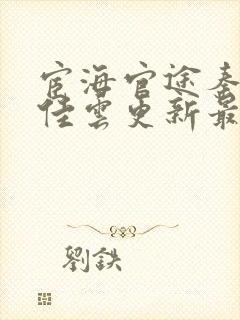 宦海官途秦
佳雲更新最
劉鉄